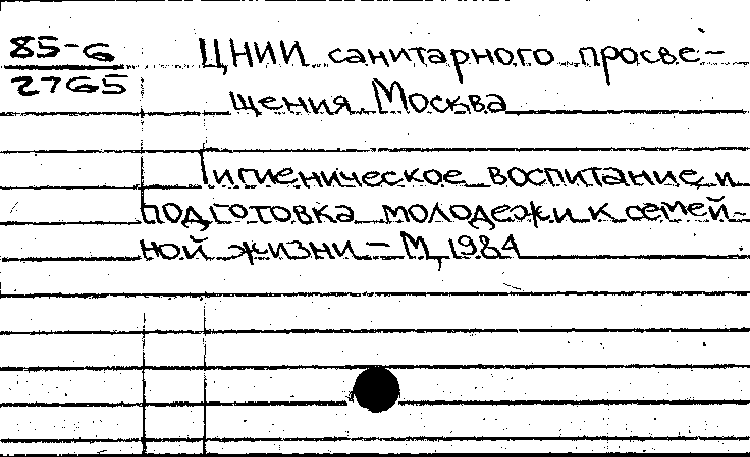 85-6
2765
ЦНИИ санитарного просве-
щения. Москва
Гигиеническое воспитание и
подготовка молодежи к семей-
ной жизни - М, 1984